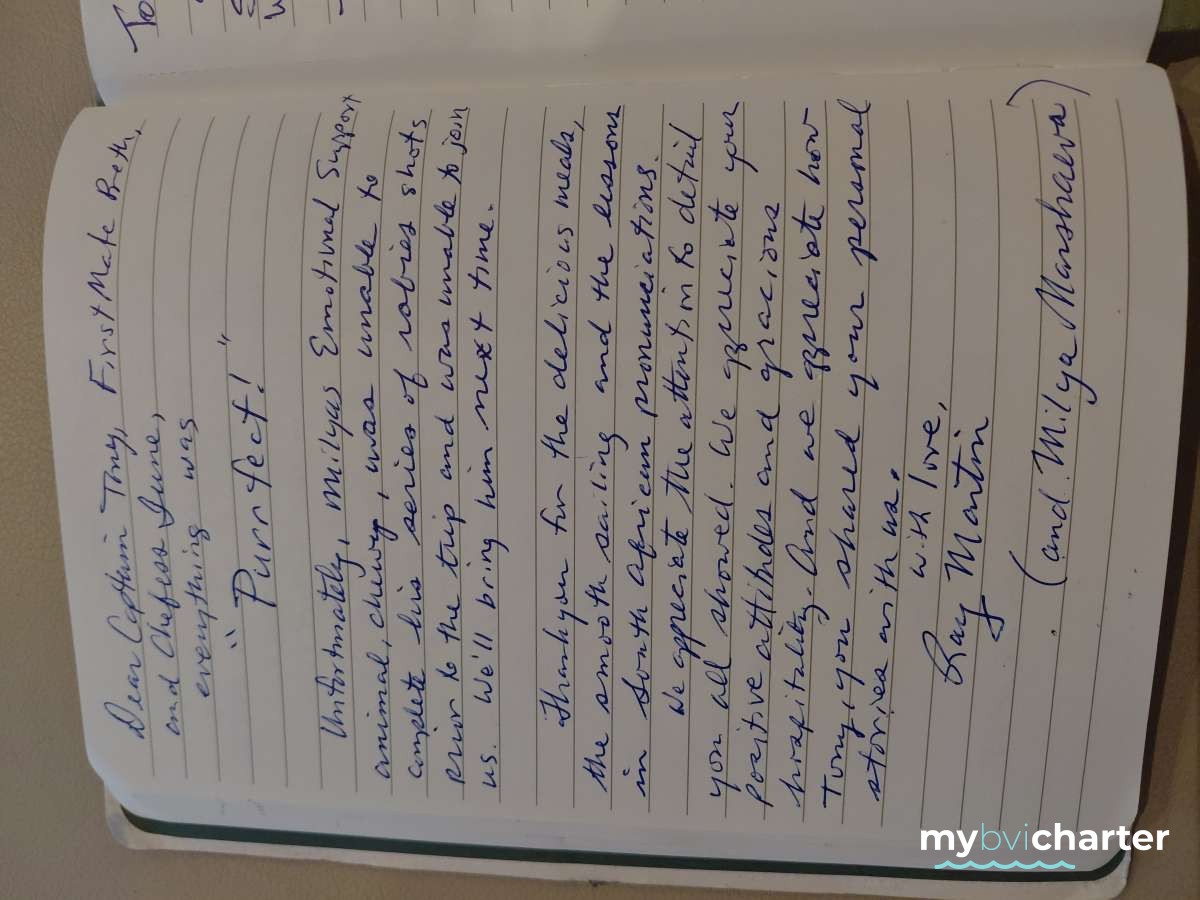 Dear Captain Tony, First Mate Beth,
and Chefess June,
everything was
"Purrfect!"
Unfortunately, Milyas Emotional Support
animal, chewy, was unable to
complete his series of rabies shots
prior to the trip and was unable to join
us. We'll bring him next time.
Thank you for the delicious meals,
the smooth sailing and the lessons
in South african pronunciations.
We appreciate the attention to detail
you all showed. We appreciate your
positive attitudes and gracious
hospitality. And we appreciate how
Tony, you shared your personal
stories with us.
with love,
Ray Martin
(and Milya Marshaeva)
To
mybvicharter